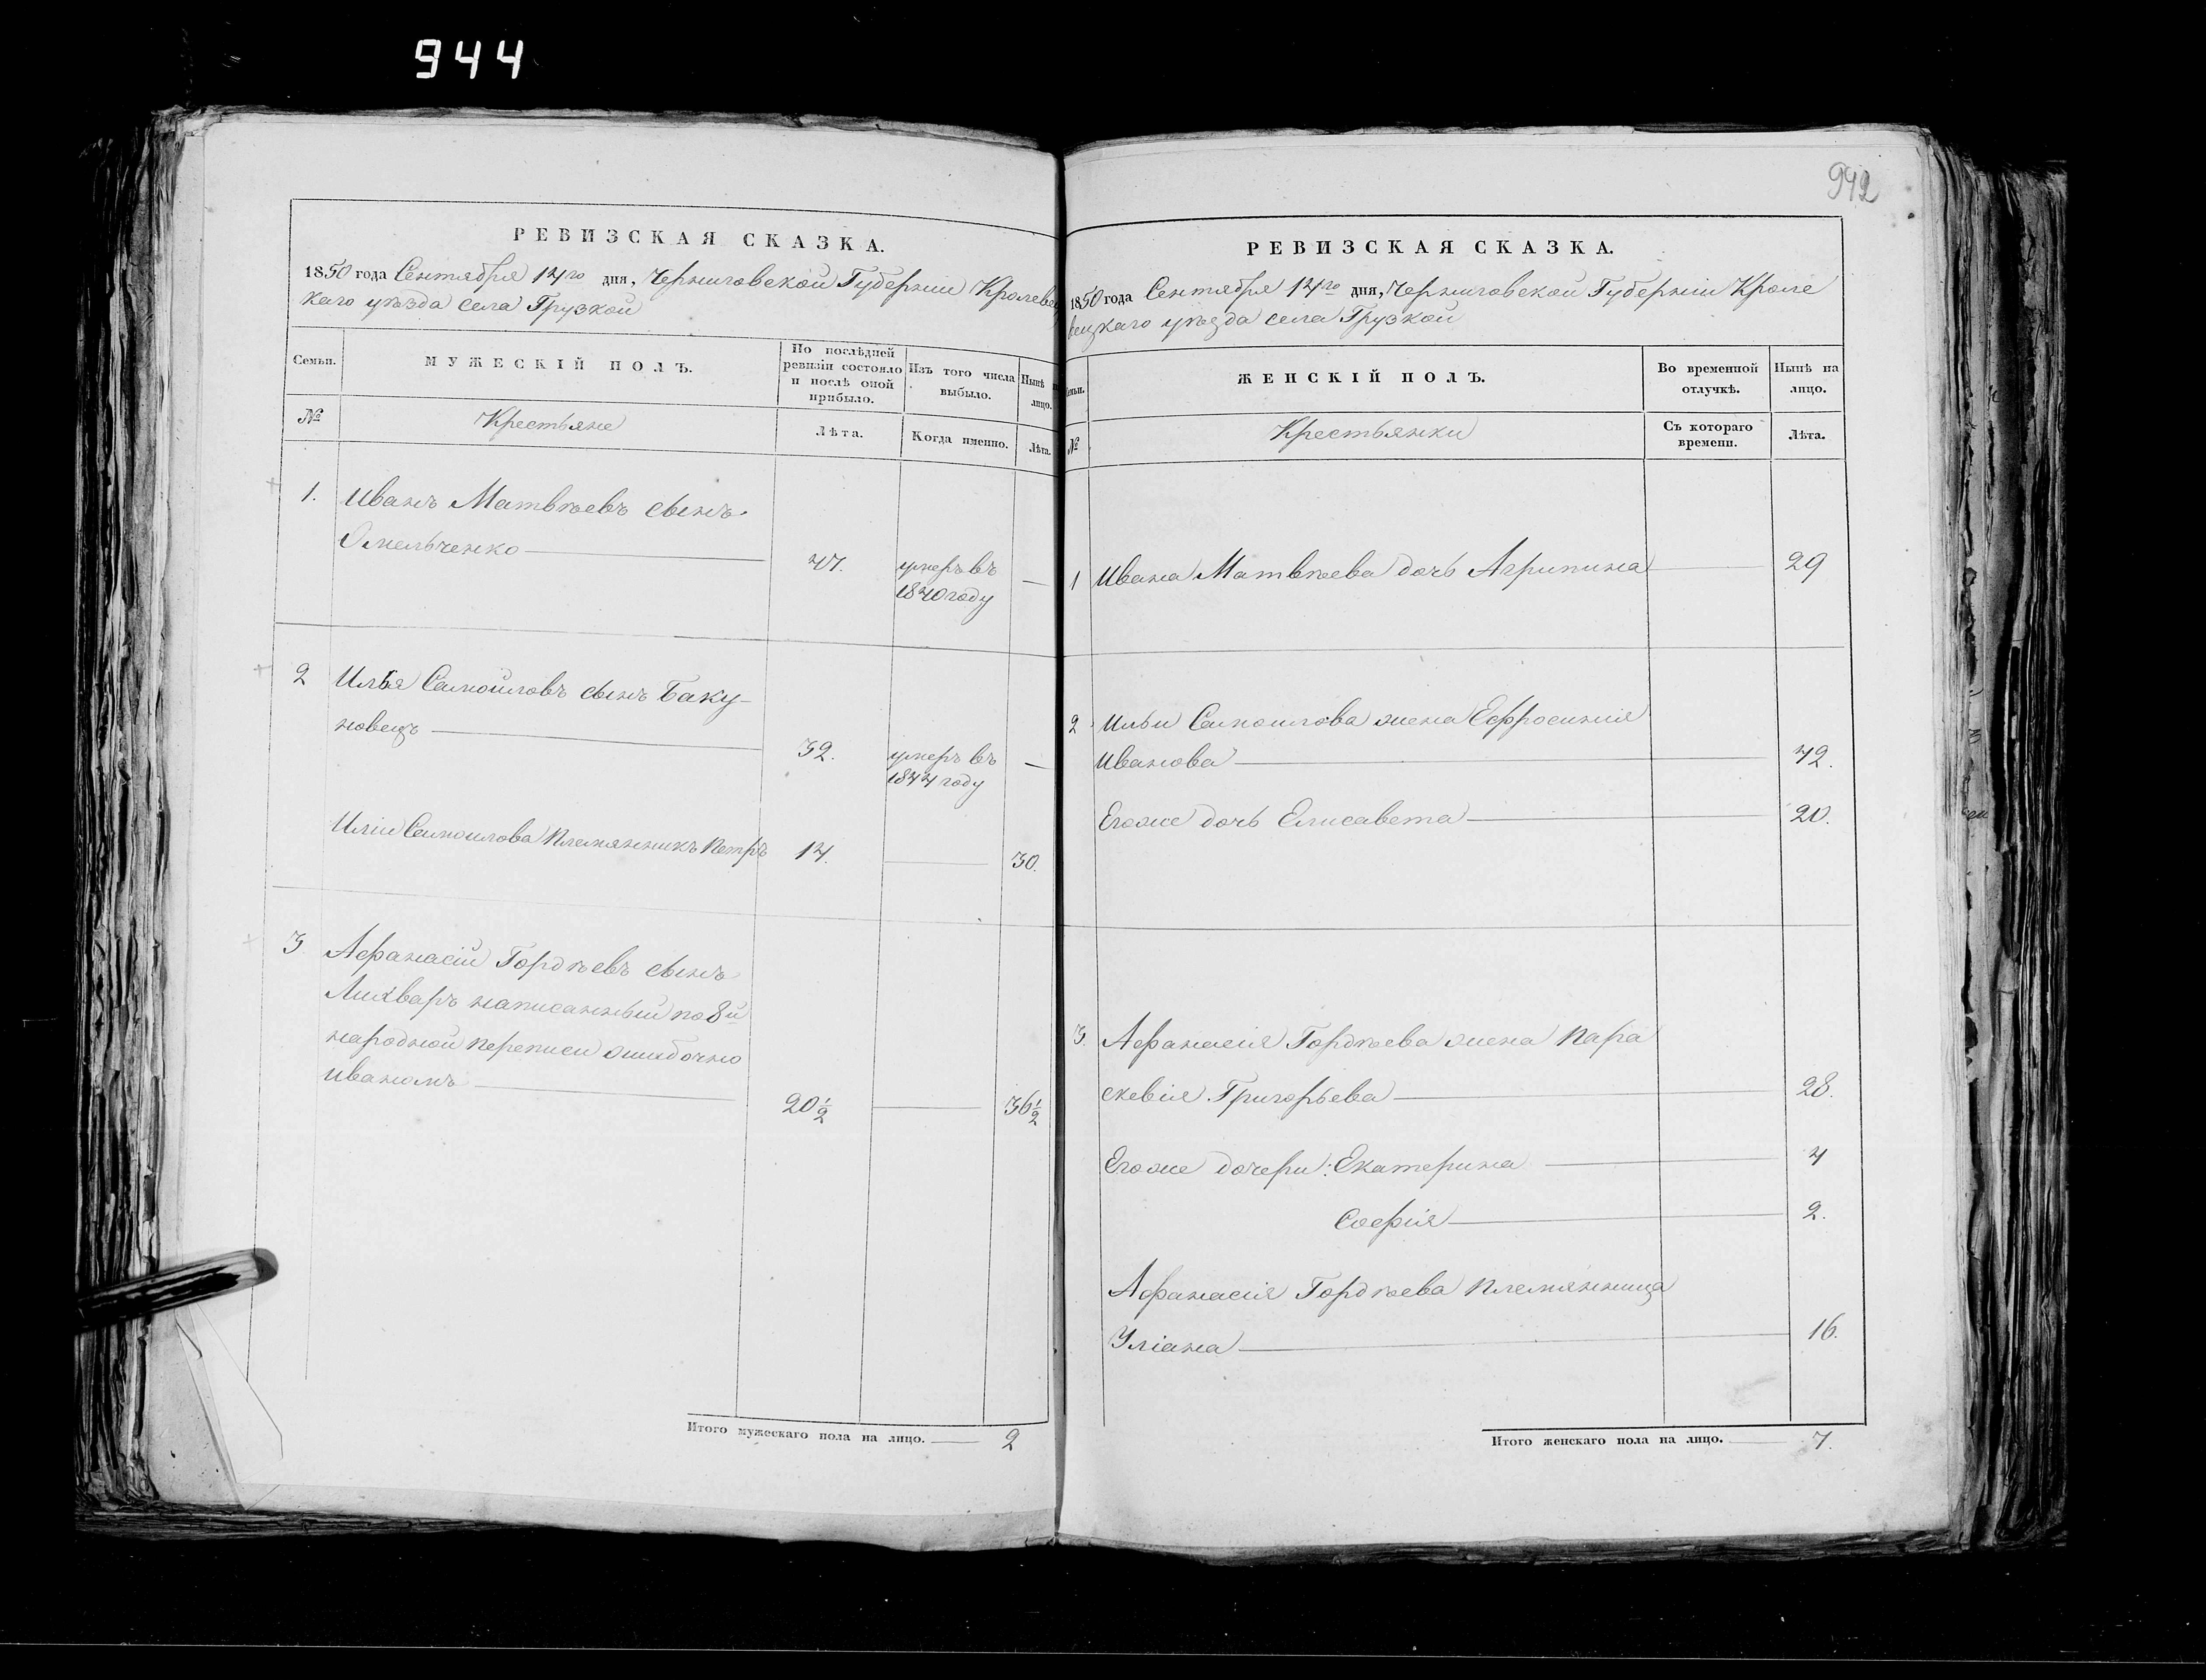 944
942
РЕВИЗСКАЯ СКАЗКА.
1850 года Сентября 14го дня, Черниговской Губерніи Кролевец
каго уѣзда села Грузкой
Семьи.
МУЖЕСКІЙ ПОЛЪ.
По послѣдней ревизіи состояло и послѣ оной прибыло.
Изъ того числа выбыло.
Нынѣ на лицо.
№
Крестьяне
Лѣта.
Когда именно.
Лѣта.
1. Иванъ Матвѣевъ сынъ
Омельченко 47. умеръ въ
1840 году
2 Илья Самойловъ сынъ Баку-
новецъ 32. умеръ въ
1844 году
Иліи Самоилова Племянникъ Петръ 14. 30.
3 Афанасій Гордѣевъ сынъ
Лихваръ написанный по 8й
народной переписи ошибочно
Иваномъ 20½ 36½
Итого мужескаго пола на лицо. 2
РЕВИЗСКАЯ СКАЗКА.
1850 года Сентября 14го дня, Черниговской Губерніи Кроле
вецкаго уѣзда села Грузкой
Семьи.
ЖЕНСКІЙ ПОЛЪ.
Во временной отлучкѣ.
Нынѣ на лицо.
№
Крестьянки
Съ котораго времени.
Лѣта.
1 Ивана Матвѣева дочь Агрипина 29
2 Ильи Самоилова жена Ефросинія
Иванова 42.
Егоже дочь Елисавета 20.
3. Афанасія Гордѣева жена Пара
скевія Григорьева 28.
Егоже дочери: Екатерина 4
Софія 2.
Афанасія Гордѣева племянница
Уліана 16.
Итого женскаго пола на лицо. 7.